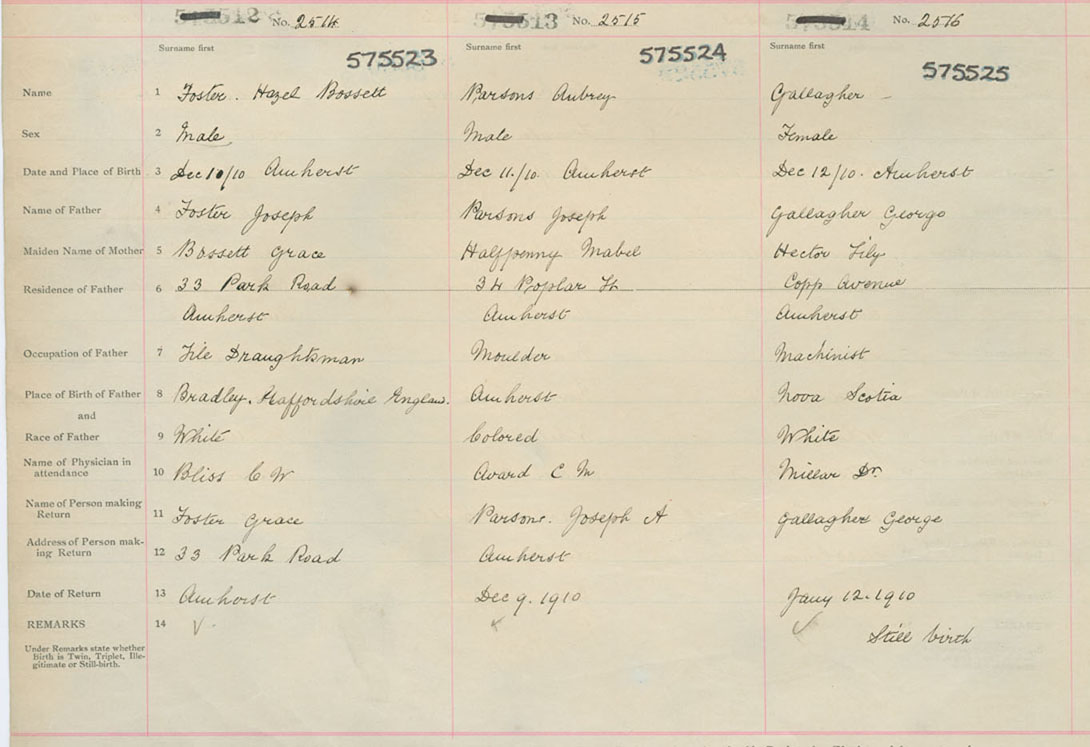 No. 2514 No. 2515 No. 2516
Surname first Surname first Surname first
575523 575524 575525
Name 1 Foster. Hazel Bossett Parsons Aubrey Gallagher —
Sex 2 Male Male Female
Date and Place of Birth 3 Dec 10/10 Amherst Dec 11./10. Amherst Dec 12/10. Amherst
Name of Father 4 Foster Joseph Parsons Joseph Gallagher George
Maiden Name of Mother 5 Bossett Grace Halfpenny Mabel Hector Lily
Residence of Father 6 33 Park Road 34 Poplar St Copp Avenue
Amherst Amherst Amherst
Occupation of Father 7 Tile Draughtsman Moulder Machinist
Place of Birth of Father 8 Bradley. Staffordshire Amherst Nova Scotia
and
Race of Father 9 White Colored White
Name of Physician in
attendance 10 Bliss C W Avard C M Millar Dr.
Name of Person making
Return 11 Foster Grace Parsons. Joseph A Gallagher George
Address of Person mak-
ing Return 12 33 Park Road Amherst
Date of Return 13 Amherst Dec 9. 1910 Jany 12. 1910
REMARKS 14
Still birth
Under Remarks state whether
Birth is Twin, Triplet, Ille-
gitimate or Still-birth.